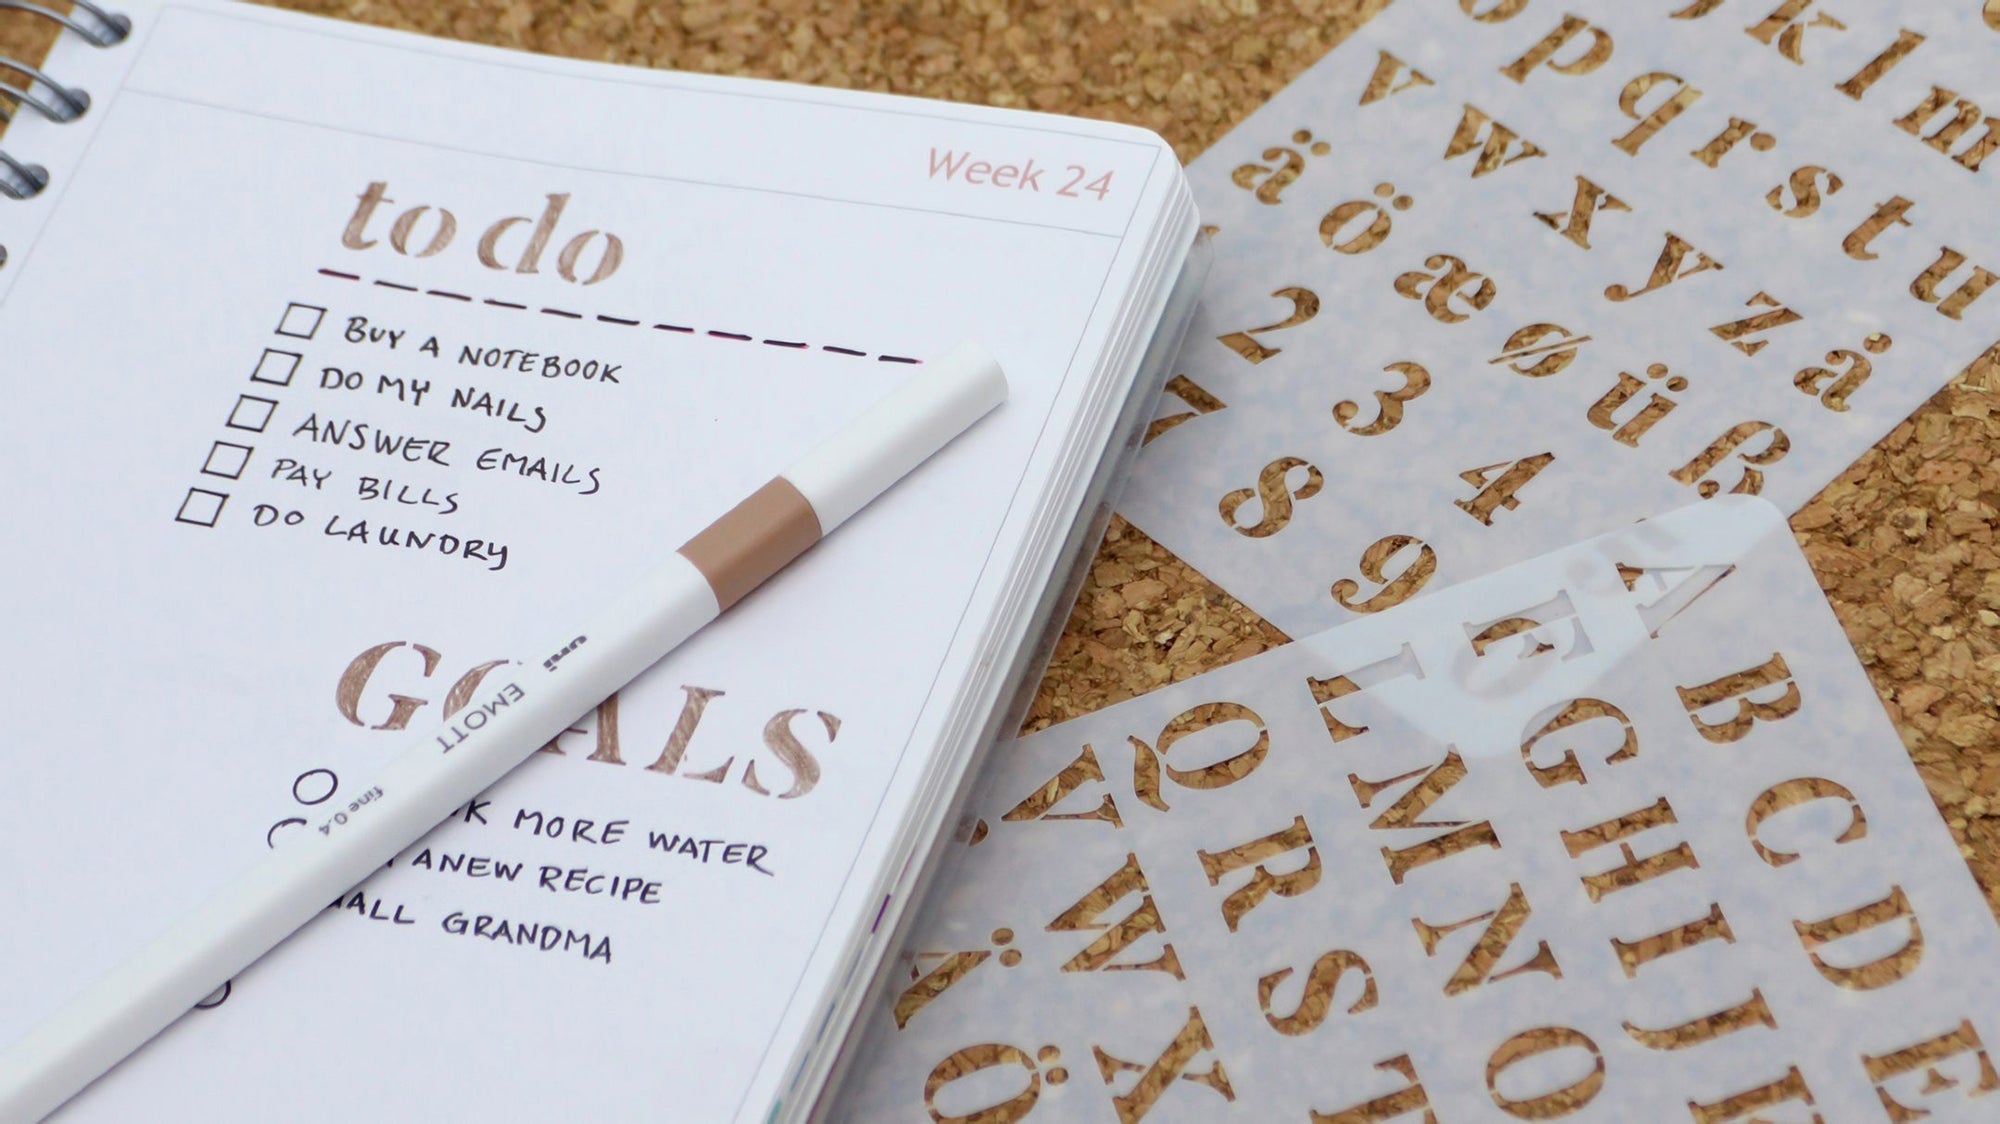 Week 24
to do
BUY A NOTEBOOK
DO MY NAILS
ANSWER EMAILS
PAY BILLS
DO LAUNDRY
GOALS
MORE WATER
A NEW RECIPE
GRANDMA
uni
EMOTT
fine 0.4
k l m
o p q r s t u
v w x y z å
ä ö æ ø ü ß
2 3 4
7 8 9
A B C D E
F G H I J
L M N O
Q R S T
V W X
Ä Ö